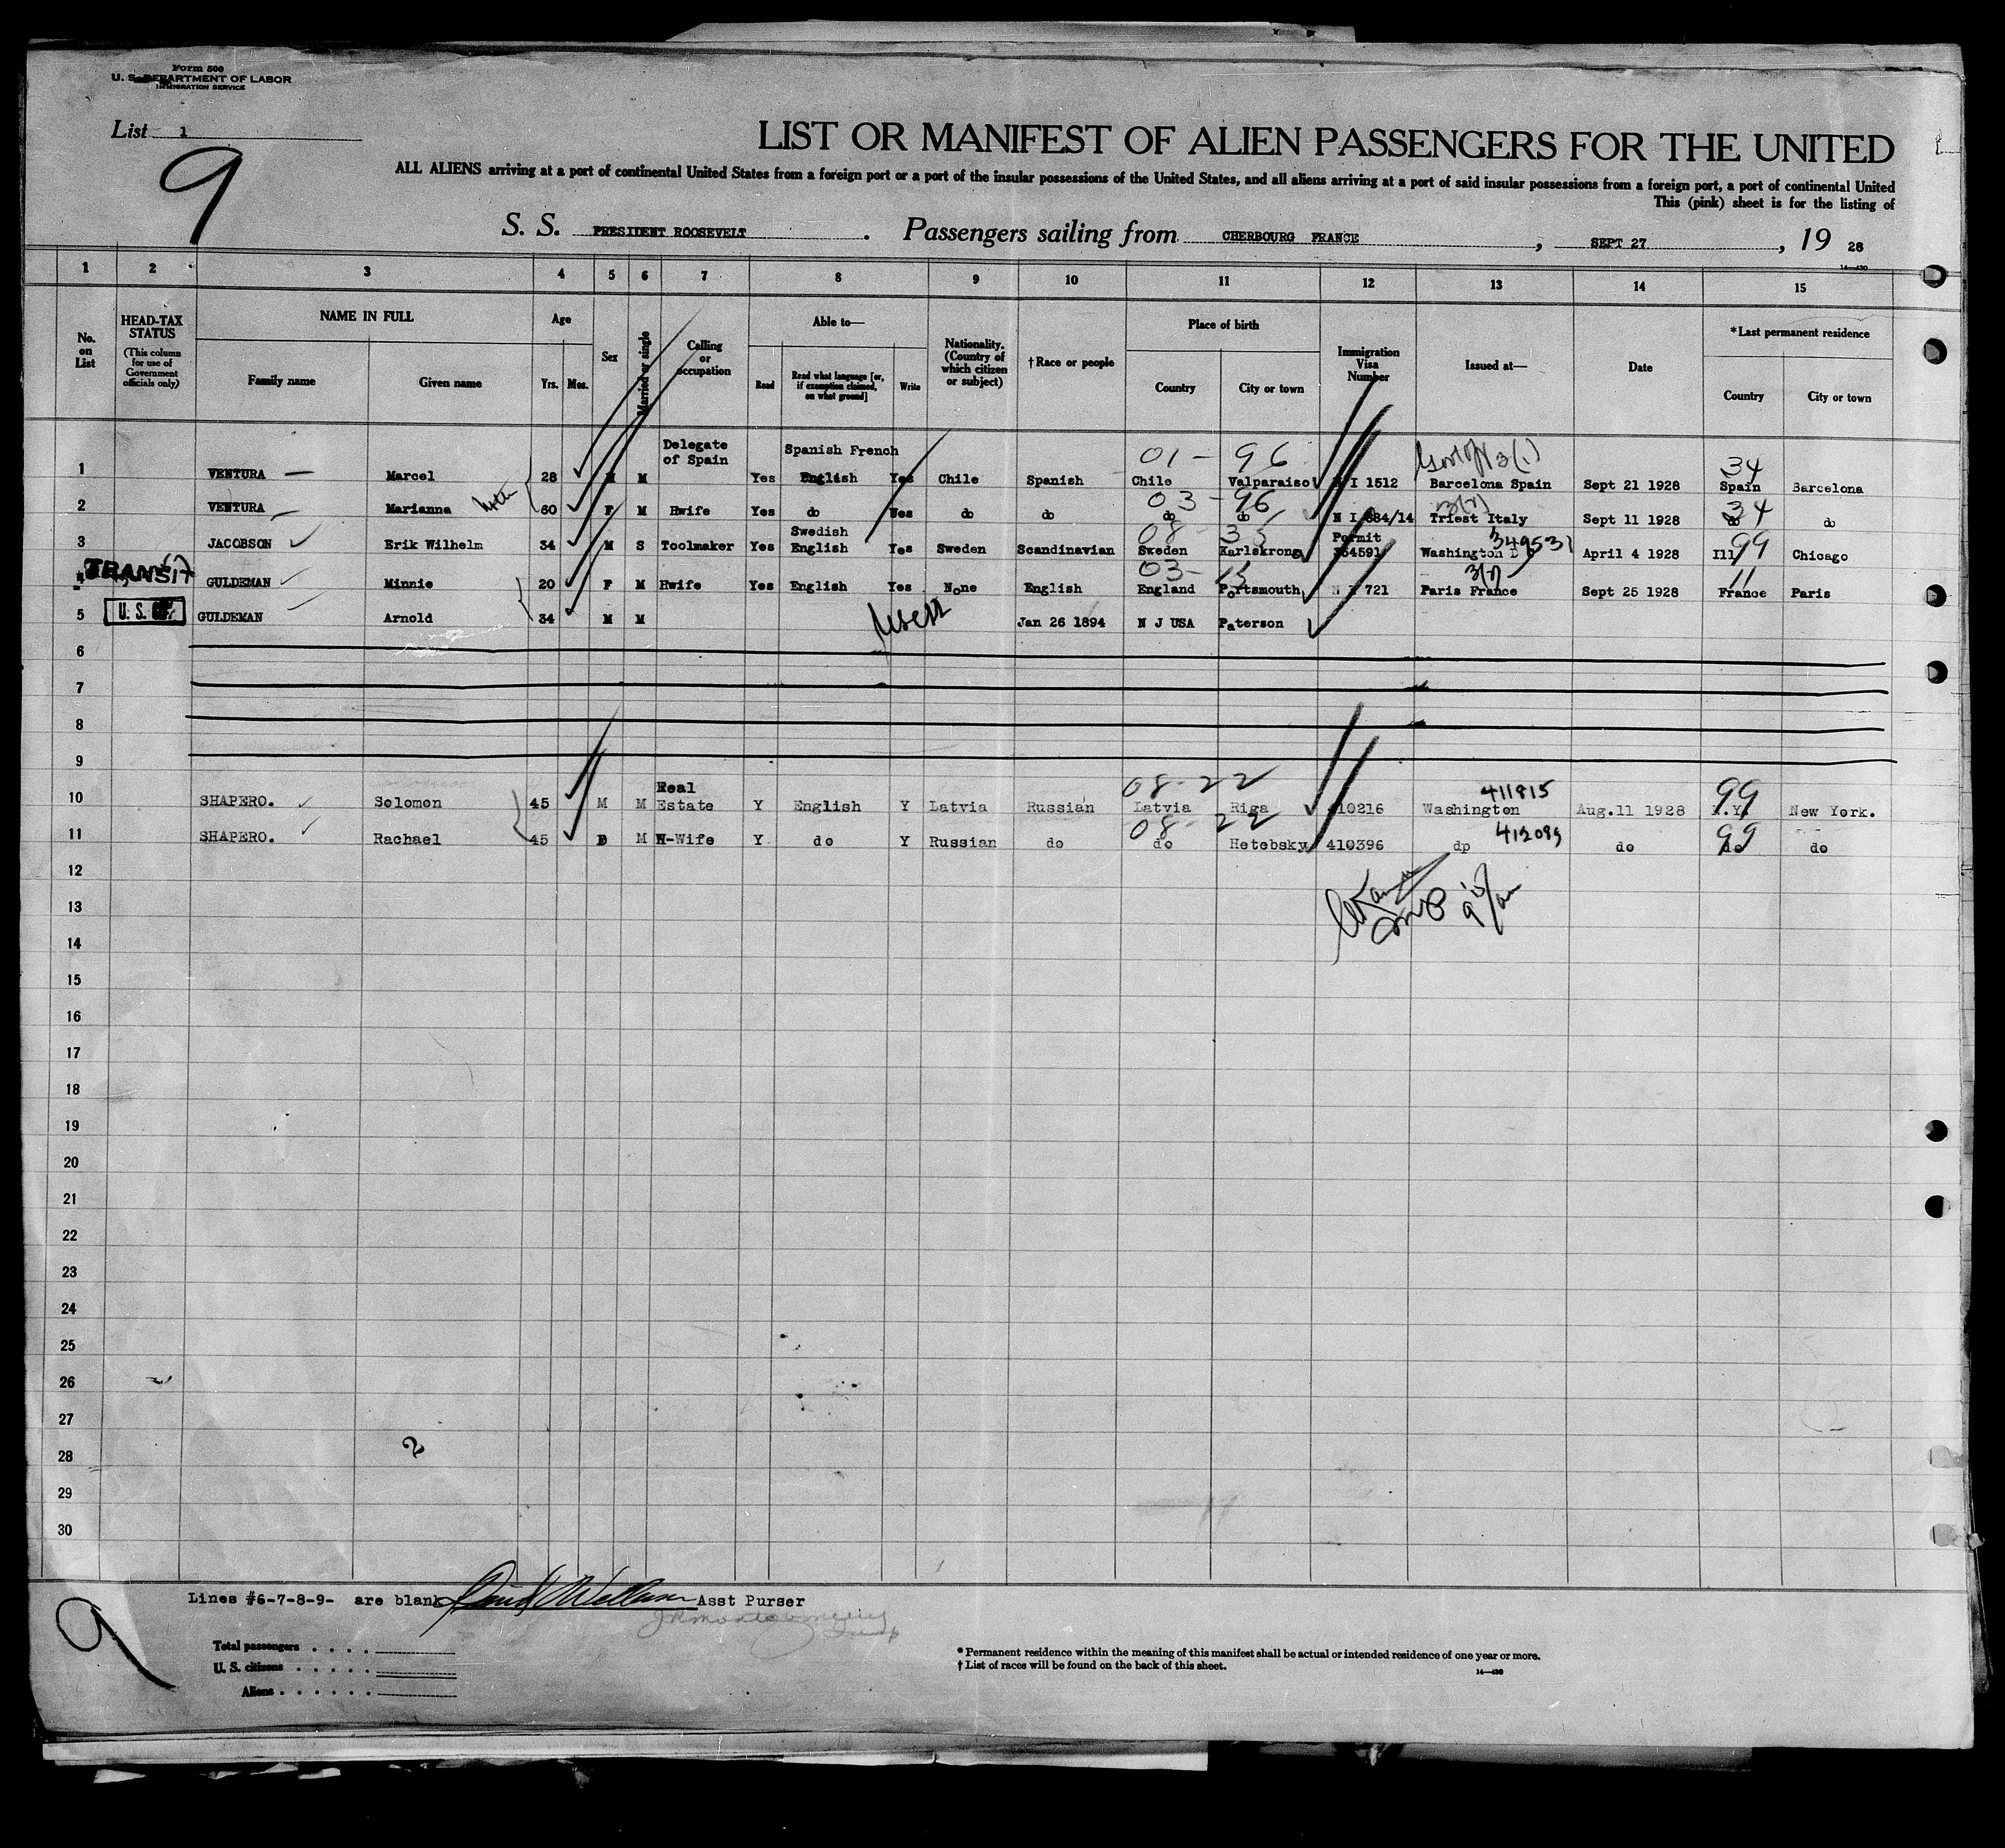 Form 500
U. S. DEPARTMENT OF LABOR
IMMIGRATION SERVICE
List 1
9
LIST OR MANIFEST OF ALIEN PASSENGERS FOR THE UNITED
ALL ALIENS arriving at a port of continental United States from a foreign port or a port of the insular possessions of the United States, and all aliens arriving at a port of said insular possessions from a foreign port, a port of continental United
This (pink) sheet is for the listing of
S. S. PRESIDENT ROOSEVELT. Passengers sailing from CHERBOURG FRANCE, SEPT 27, 19 28
1 2 3 4 5 6 7 8 9 10 11 12 13 14 15
No. on List
HEAD-TAX STATUS
(This column for use of Government officials only)
NAME IN FULL
Family name Given name
Age
Yrs. Mos.
Sex
Married or single
Calling or occupation
Able to—
Read Read what language [or, if exemption claimed, on what ground] Write
Nationality. (Country of which citizen or subject)
†Race or people
Place of birth
Country City or town
Immigration Visa Number
Issued at—
Date
*Last permanent residence
Country City or town
01 - 96 34
1 VENTURA — Marcel 28 M M Delegate of Spain Yes Spanish French English Yes Chile Spanish Chile Valparaiso N I 1512 Barcelona Spain Sept 21 1928 Spain Barcelona
03 - 96 34
2 VENTURA Marianna 60 F M Hwife Yes do Yes do do do do N I 884/14 Triest Italy Sept 11 1928 do do
08 - 35 349531 99
3 JACOBSON Erik Wilhelm 34 M S Toolmaker Yes Swedish English Yes Sweden Scandinavian Sweden Karlskrona Permit 364591 Washington D April 4 1928 Ill Chicago
TRANSIT 03- 15 11
4 GULDEMAN Minnie 20 F M Hwife Yes English Yes None English England Portsmouth 721 Paris France Sept 25 1928 France Paris
5 U. S. GULDEMAN Arnold 34 M M Jan 26 1894 N J USA Paterson
6
7
8
9
08-22 411815 99
10 SHAPERO. Solomon 45 M M Real Estate Y English Y Latvia Russian Latvia Riga 410216 Washington Aug.11 1928 N.Y. New York.
08-22 412089 99
11 SHAPERO. Rachael 45 M H-Wife Y do Y Russian do do Hetebsky 410396 dp do do do
12
13
14
15
16
17
18
19
20
21
22
23
24
25
26
27
2
28
29
30
Lines #6-7-8-9- are blank Asst Purser
9
Total passengers
U. S. citizens
Aliens
* Permanent residence within the meaning of this manifest shall be actual or intended residence of one year or more.
† List of races will be found on the back of this sheet.